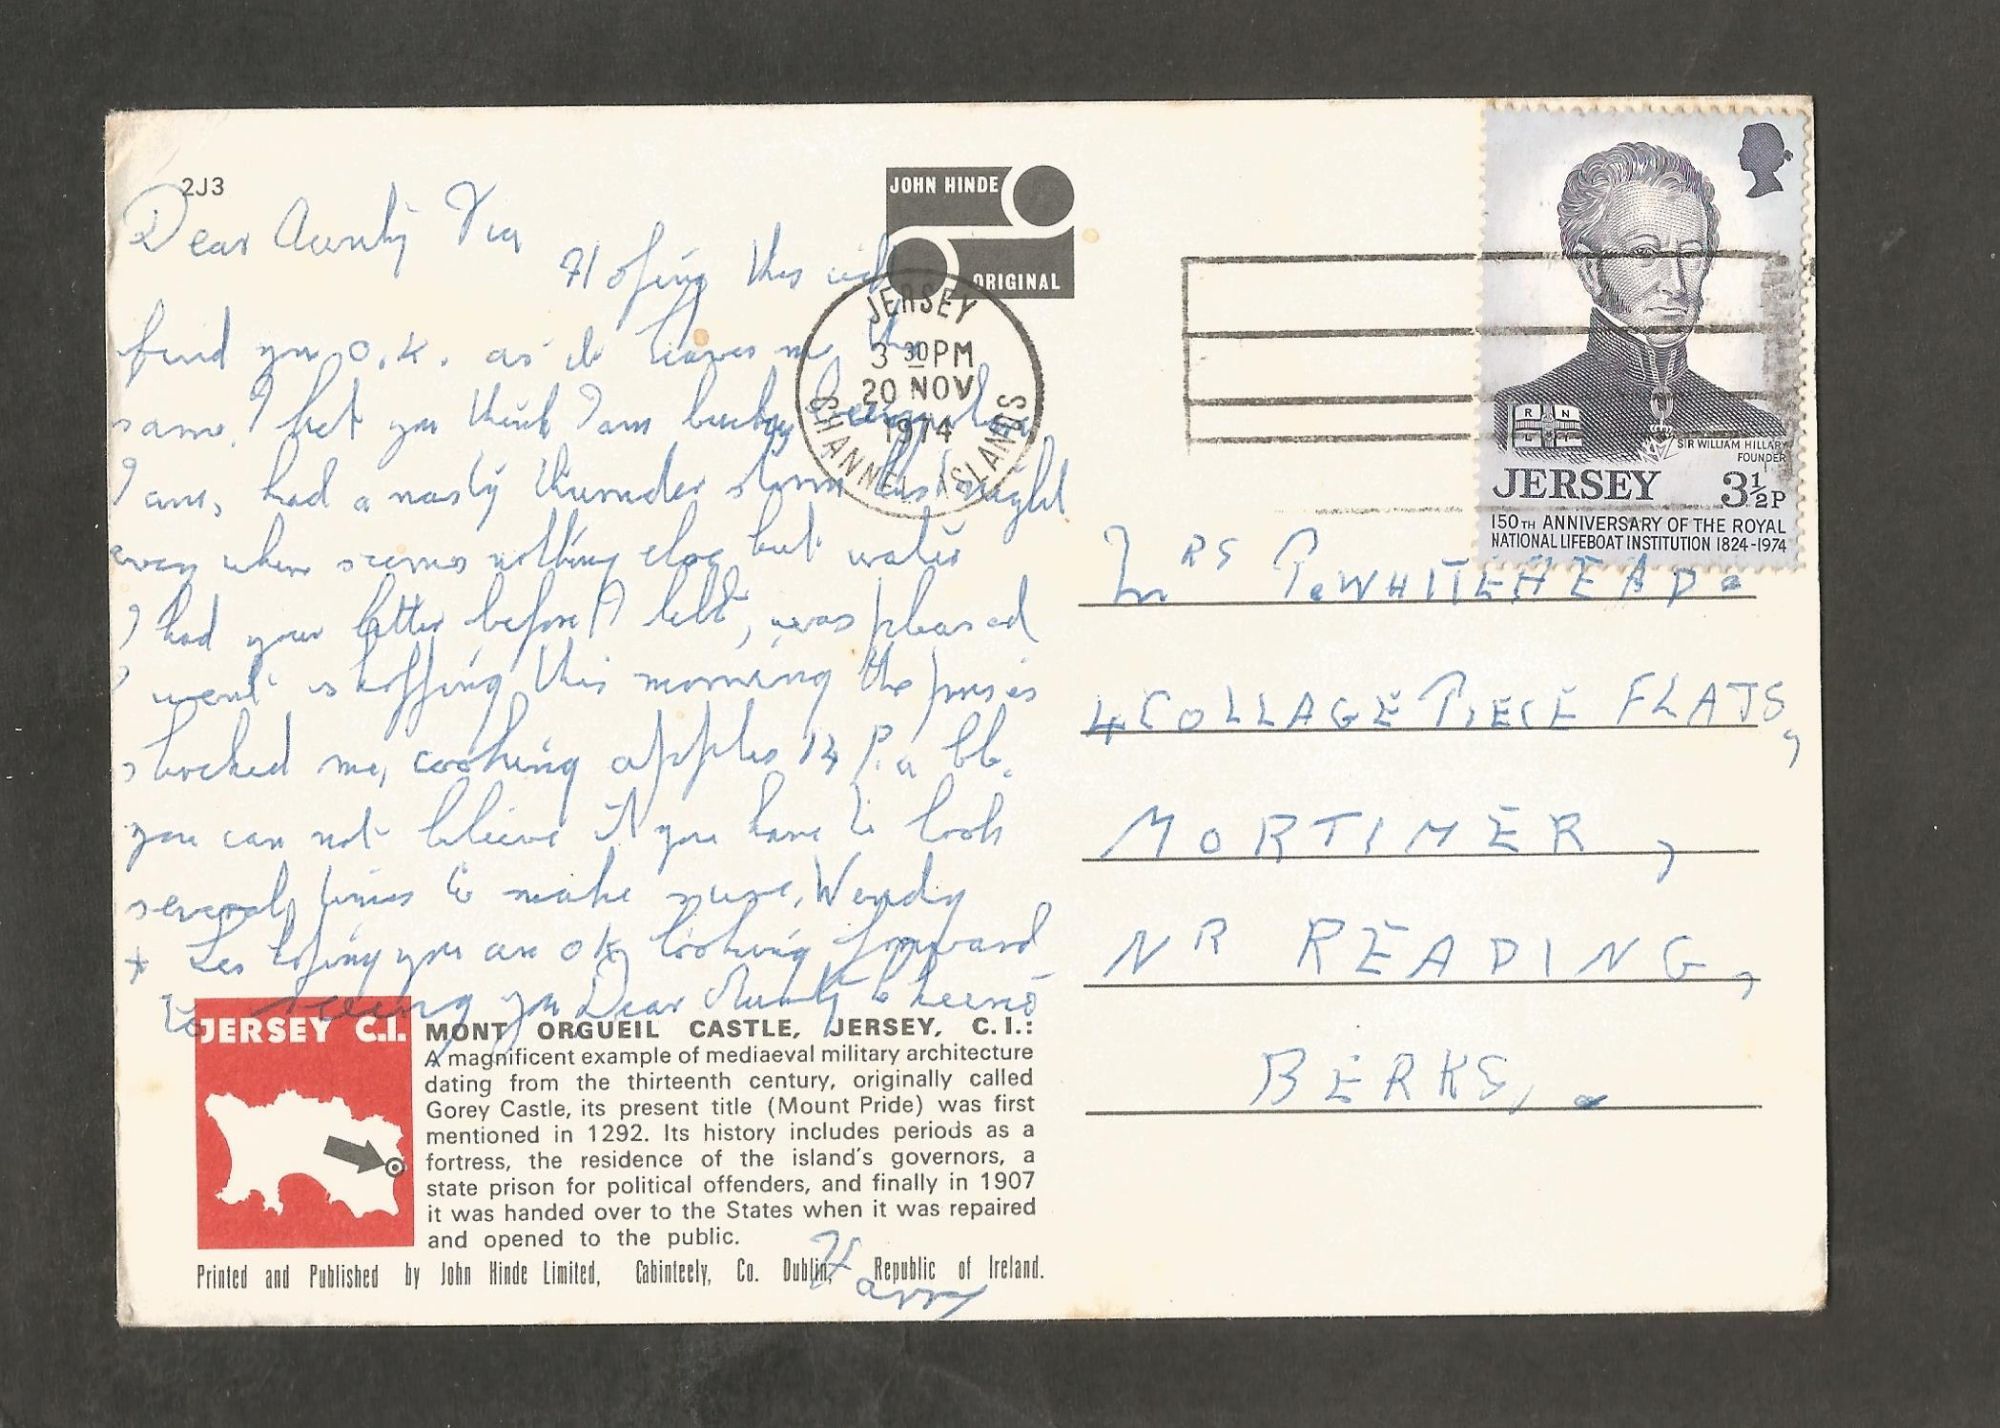 2J3
JOHN HINDE
ORIGINAL
Dear Aunty
Hoping this
find you O.K. as it leaves me the
same, I bet you think I am lucky being
I am, had a nasty thunder storm last night
every where seems nothing else but water
I had your letter before I left, was pleased
I went shopping this morning the prices
shocked me, cooking apples 14 P. a lb.
you can not believe it you have to look
several times to make sure, Wendy
+ Les hoping you are OK looking forward
to seeing you Dear Aunty
Harry
JERSEY
3 30 PM
20 NOV
1974
CHANNEL ISLANDS
R N
L I
SIR WILLIAM HILLARY
FOUNDER
JERSEY 3½P
150TH ANNIVERSARY OF THE ROYAL
NATIONAL LIFEBOAT INSTITUTION 1824-1974
MRS P. WHITEHEAD.
4 COLLAGE PIECE FLATS,
MORTIMER,
NR READING,
BERKS,.
JERSEY C.I.
MONT ORGUEIL CASTLE, JERSEY, C.I.:
A magnificent example of mediaeval military architecture
dating from the thirteenth century, originally called
Gorey Castle, its present title (Mount Pride) was first
mentioned in 1292. Its history includes periods as a
fortress, the residence of the island's governors, a
state prison for political offenders, and finally in 1907
it was handed over to the States when it was repaired
and opened to the public.
Printed and Published by John Hinde Limited, Cabinteely, Co. Dublin, Republic of Ireland.